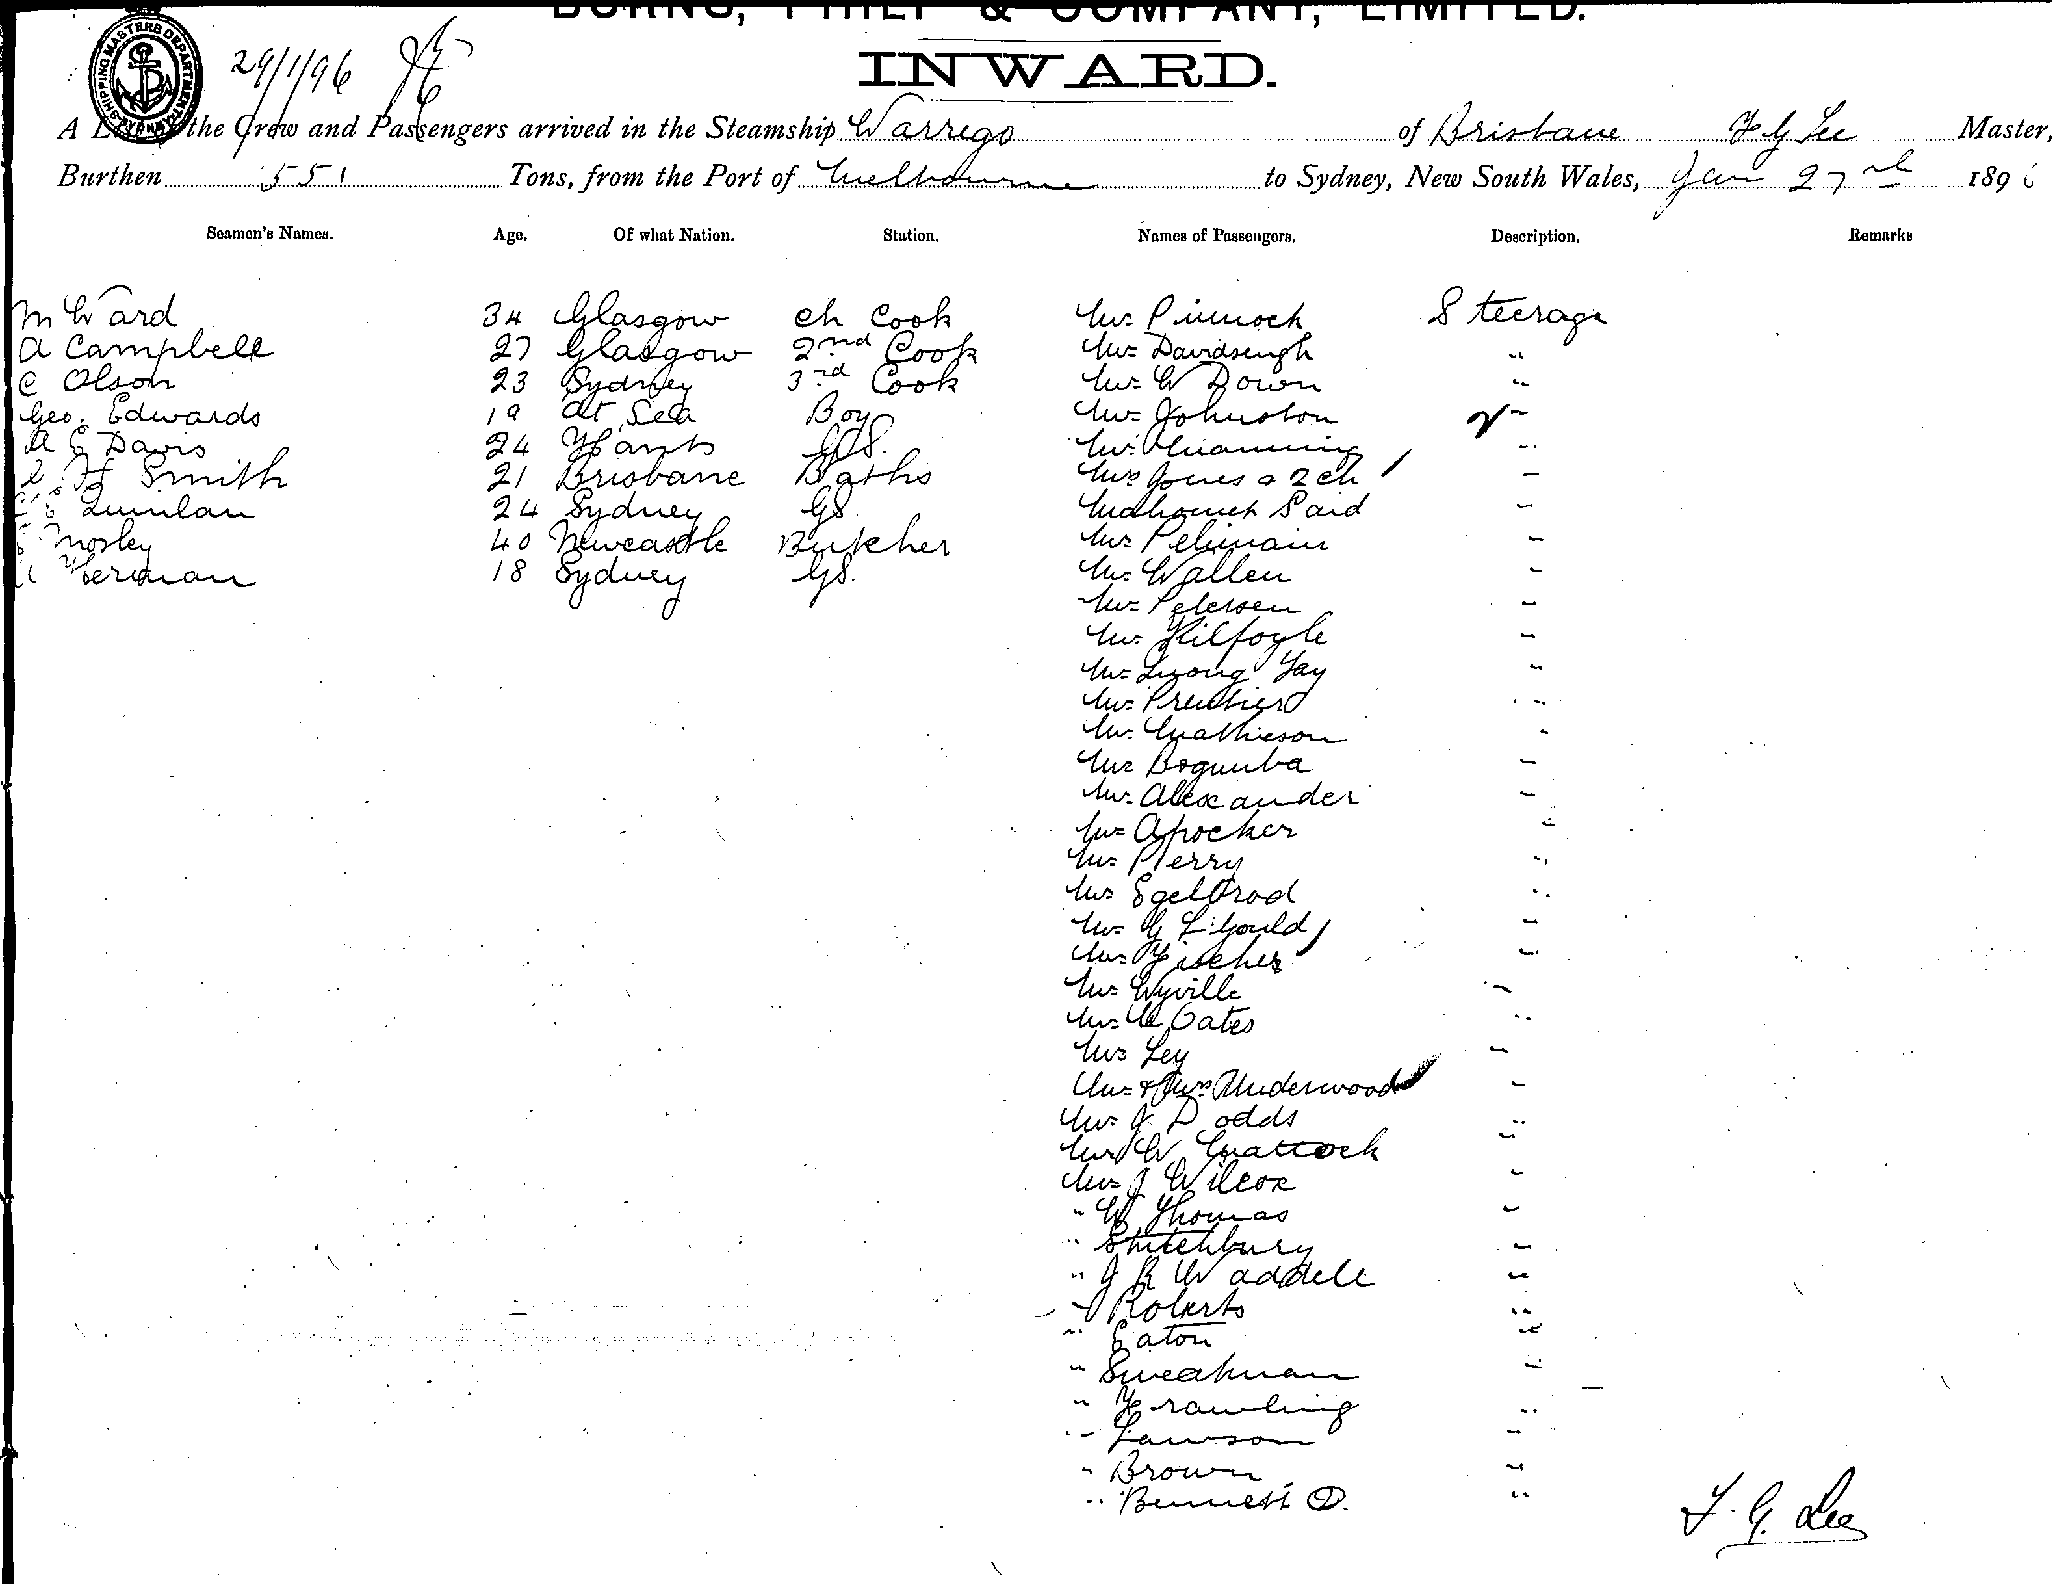 BURNS, PHILP & COMPANY, LIMITED.
INWARD.
SHIPPING MASTERS DEPARTMENT SYDNEY
29/1/96
A List of the Crew and Passengers arrived in the Steamship Warrego of Brisbane F G Lee Master,
Burthen 551 Tons, from the Port of Melbourne to Sydney, New South Wales, Jan 27th 1896
Seamen's Names. Age. Of what Nation. Station. Names of Passengers. Description. Remarks
M Ward 34 Glasgow Ch Cook Mr Pinnock Steerage
A Campbell 27 Glasgow 2nd Cook Mr Davidsingh "
C Olson 23 Sydney 3rd Cook Mr W Down "
Geo. Edwards 19 At Sea Boy Mr Johnston "
A E Davis 24 Hants GS. Mr Manning "
H Smith 21 Brisbane Baths Mrs Jones & 2 ch "
Quinlan 24 Sydney GS. Mahomet Said "
Mosley 40 Newcastle Butcher Mr "
Herman 18 Sydney GS. Mr Wallen "
Mr Petersen "
Mr Kilfoyle "
Mr Luong Yay "
Mr "
Mr Mathieson "
Mr Bogumba "
Mr Alexander "
Mr Apocker "
Mr Perry "
Mr "
Mr G L Gould "
Mr Fischer "
Mr Wyville "
Mr Oates "
Mr Ley "
Mr & Mrs Underwood "
Mr J Dodds "
Mr W Mattock "
Mr J Wilcox "
" W Thomas "
" Stutchbury "
" J R Waddell "
" Roberts "
" Eaton "
" Sweatman "
" Frawling "
" Lawson "
" Brown "
" Bennett "
F. G. Lee